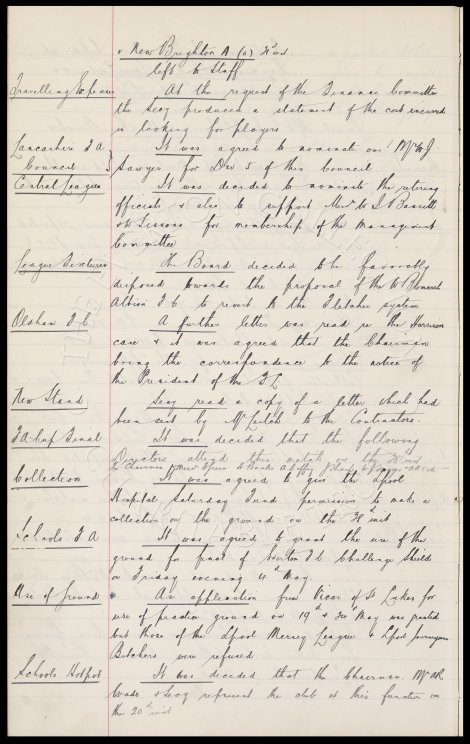 v New Brighton A (a)
left to Staff
Travelling Expenses At the request of the Finance Committee
the Secy produced a statement of the cost incurred
in looking for players
Lancashire F A It was agreed to nominate our Mr W J
Council Sawyer for Div 5 of this Council
Central League It was decided to nominate the retiring
officials & also to support Messrs
& Sissons for membership of the Management
Committee
League Fixtures The Board decided to be favorably
disposed towards the proposal of the W Bromwich
Albion F C to revert to the Fletcher system
Oldham F C A further letter was read re the Harrison
case & it was agreed that the Chairman
bring the correspondence to the notice of
the President of the F L
New Stand Secy read a copy of a letter which had
been sent by Mr Leitch to the Contractors.
F A Cup Final It was decided that the following
Directors attend this match on the
The Chairman
Collection It was agreed to give the Lpool
Hospital Saturday Fund permission to make a
collection on the ground on the
Schools F A It was agreed to grant the use of the
ground for final of Everton F C Challenge Shield
on Friday evening 4th May
Use of Ground An application from Vicar of St Lukes for
use of practice ground on 19th & May was granted
but those of the Lpool Mersey League & Lpool Journeymen
Butchers were refused
Schools Hotpot It was decided that the Chairman, Mr A R
Wade & Secy represent the club at this function on
the 20th inst